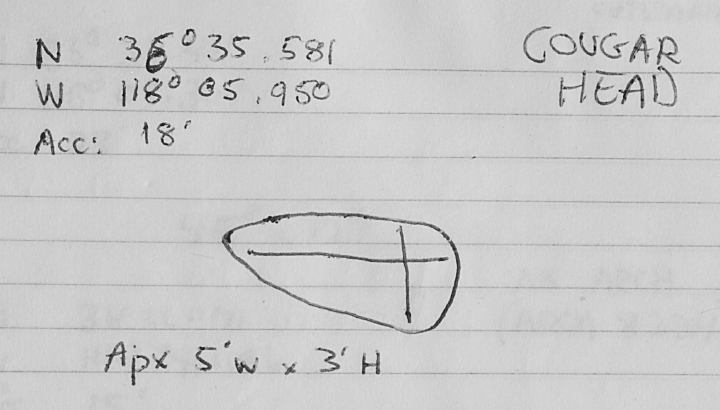 N 36° 35.581
W 118° 05.950
Acc: 18'
COUGAR
HEAD
Apx 5'W x 3'H